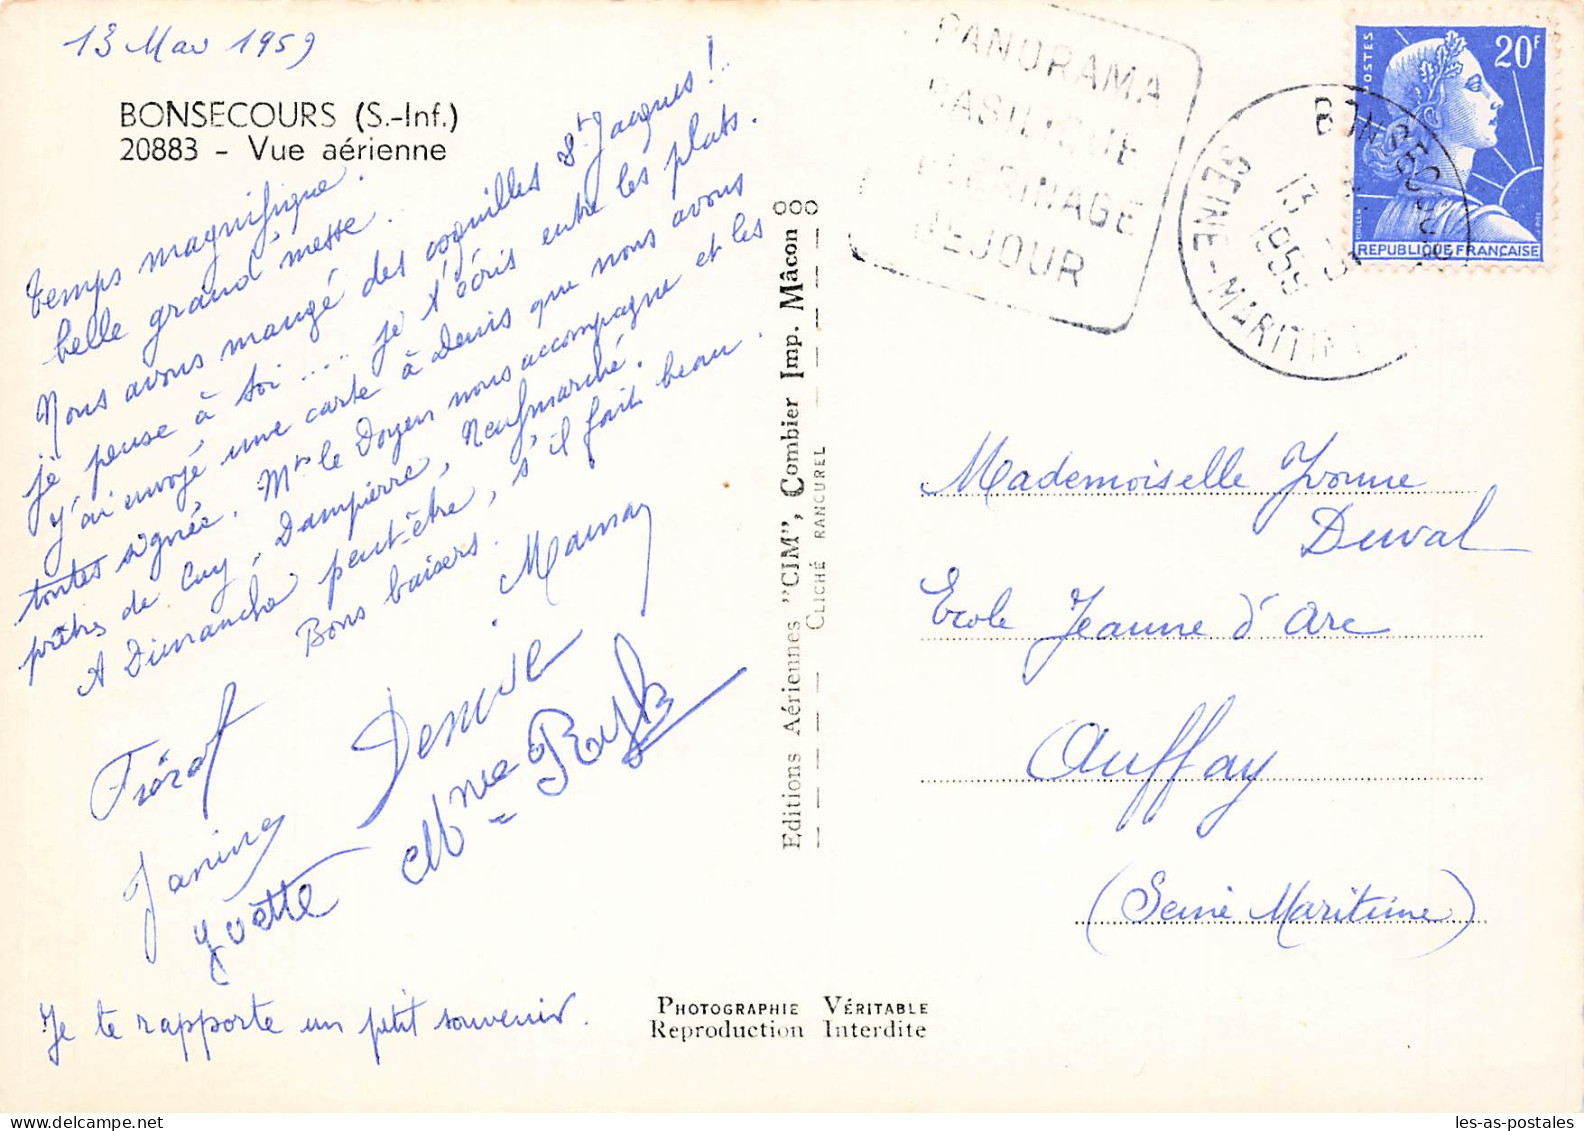 13 Mai 1959
BONSECOURS (S.-Inf.)
20883 - Vue aérienne
temps magnifique.
belle grand'messe.
Nous avons mangé des coquilles St Jacques !
je pense à toi.... je t'écris entre les plats.
J'ai envoyé une carte à Denis que nous avons
toutes signée. Mr le Doyen nous accompagne et les
prêtres de Cuy, Dampierre, Neufmarché.
A Dimanche peut-être, s'il fait beau.
Bons baisers. Maman
Denise
Janine
Yvette
Je te rapporte un petit souvenir.
Editions Aériennes "CIM", Combier Imp. Mâcon
CLICHÉ RANCUREL
PHOTOGRAPHIE VÉRITABLE
Reproduction Interdite
PANORAMA
BASILIQUE
PELERINAGE
SEJOUR
BONSECOURS
13
SEINE-MARITIME
POSTES
20F
REPUBLIQUE FRANÇAISE
Mademoiselle Yvonne
Duval
Ecole Jeanne d'Arc
Auffay
(Seine Maritime)
les-as-postales